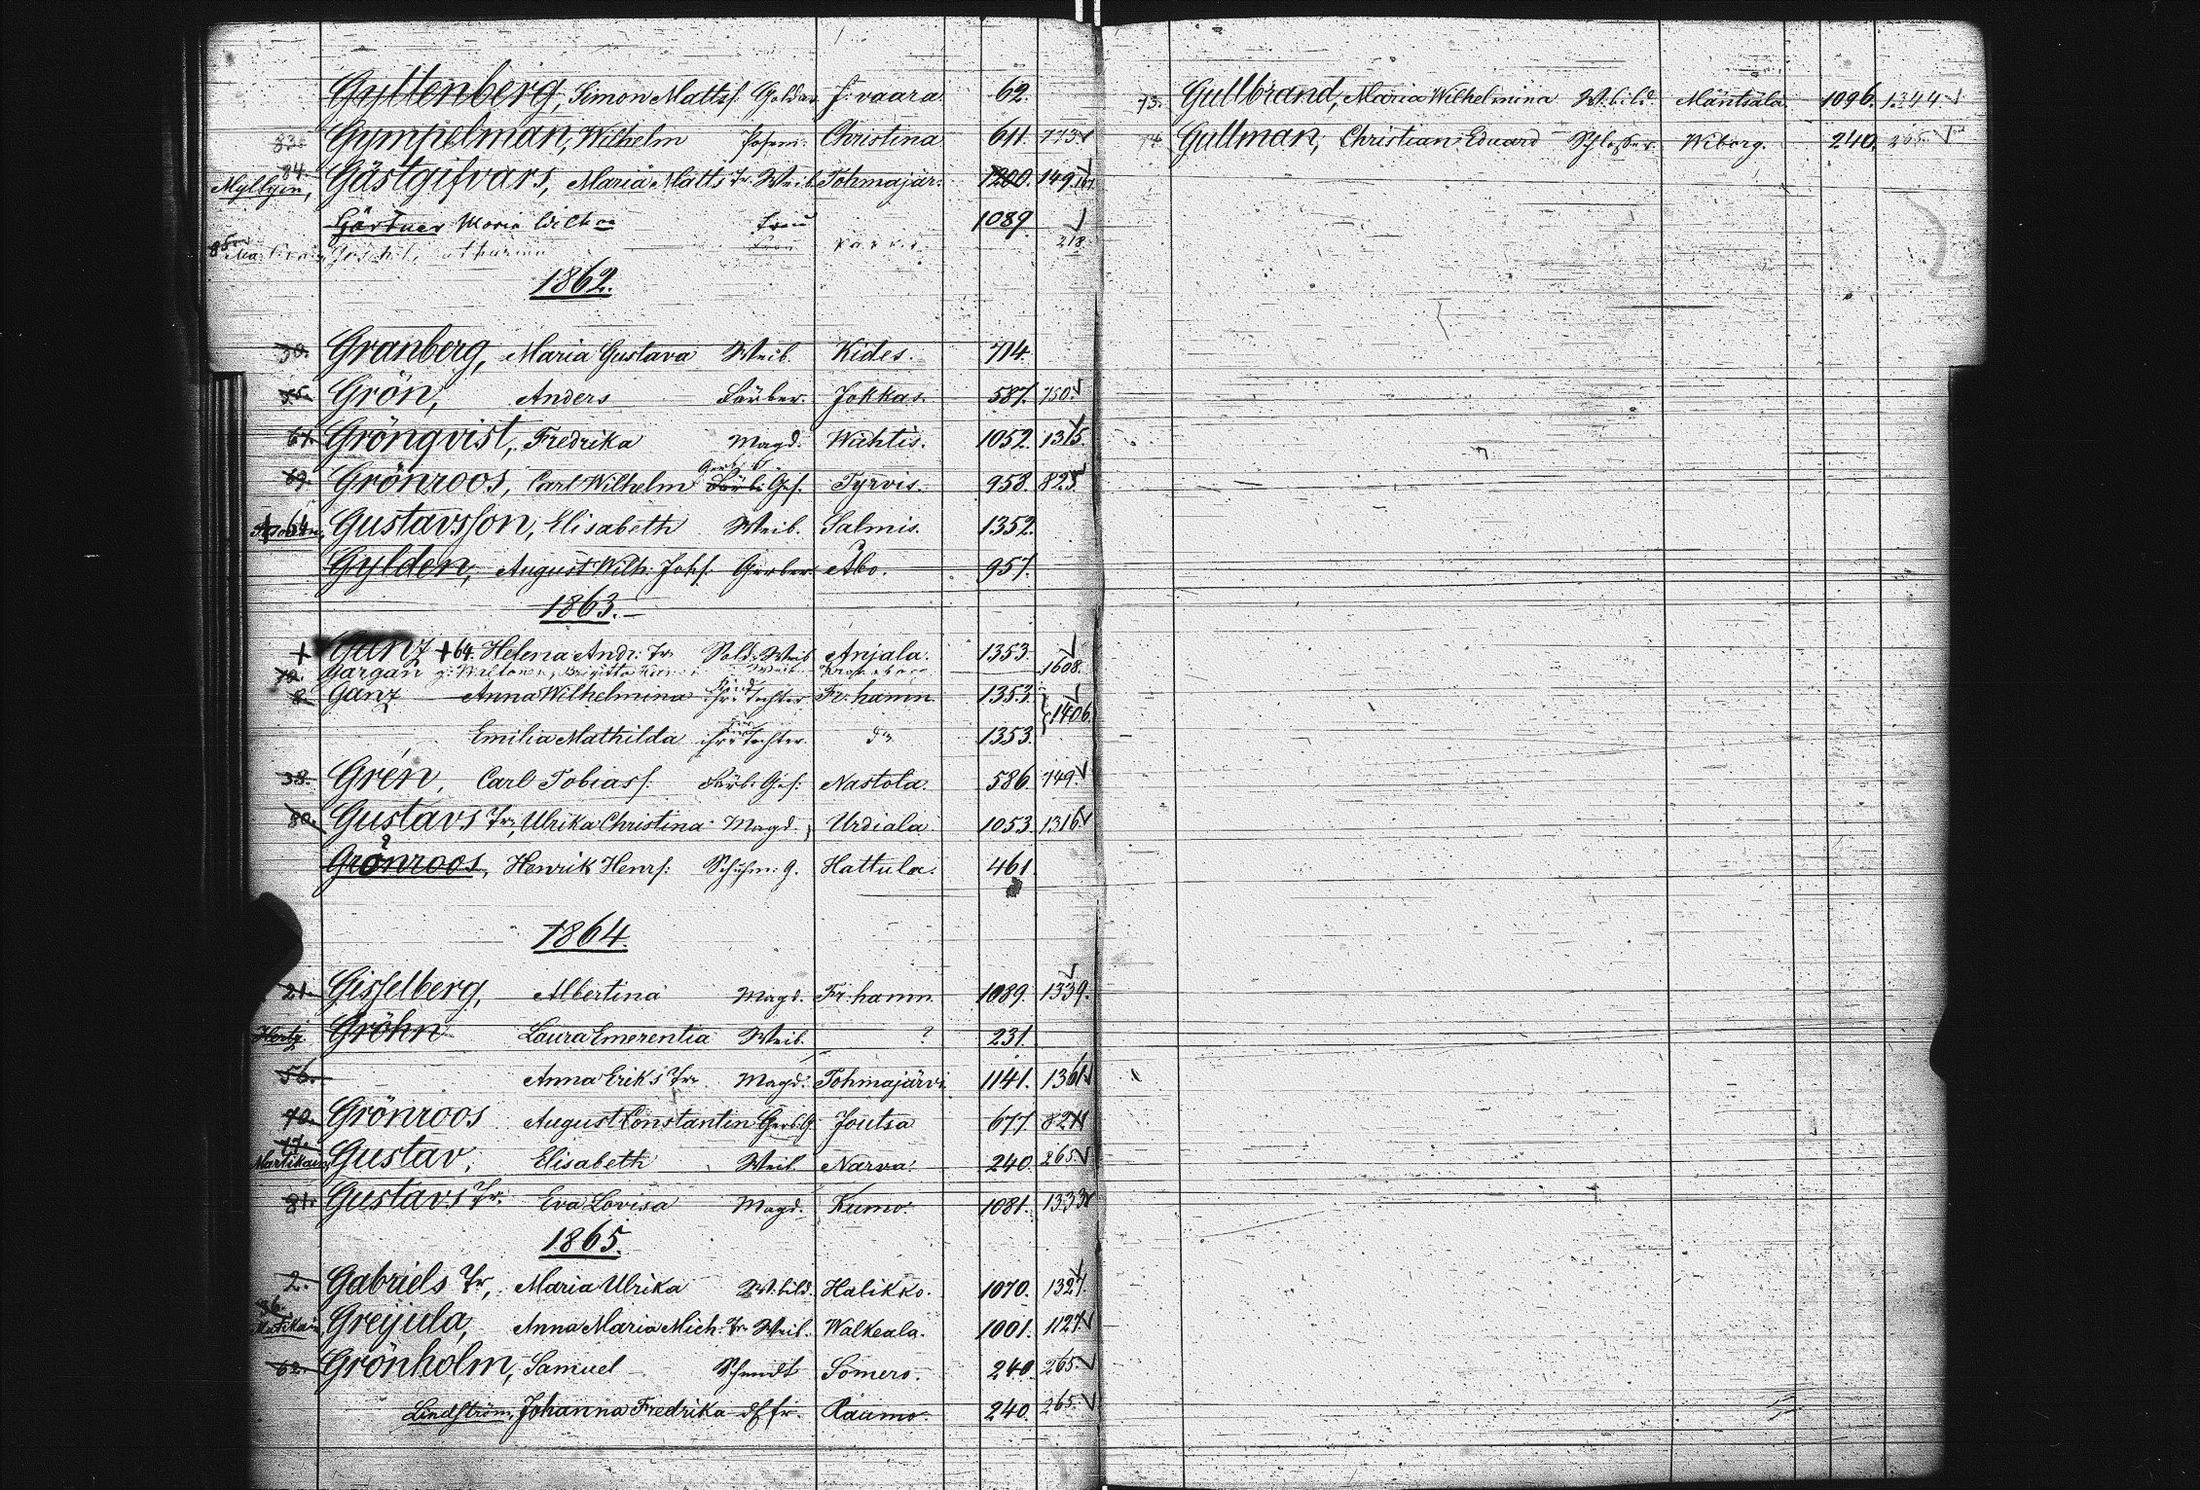 Gyltenberg, Simon Mattsf. Goldar. J:vaara. 62.
83. Gympelman, Wilhelm Posem: Christina 611. 773
84. Myllyin, Gästgifvars, Maria Matts Tr. Weib. Tohmajär: 1200. 149
Gärtner Maria Wilh Frau 1089
85. 218
1862.
30. Granberg, Maria Gustava Weib. Kides. 714.
55. Grön, Anders Färber. Jokkas. 587. 750.
61. Grönqvist, Fredrika Magd. Wichtis. 1052. 1315.
69. Grönroos, Carl Wilhelm Färb: Ges. Tyrvis. 958. 825
+ 64. Gustavsson, Elisabeth Weib. Salmis. 1352.
Gylden, August Wilh: Johs. Gerber. Åbo. 957.
1863.
+ Ganz +64. Helena Andr: Tr. Sold: Weib Anjala. 1353.
12. Gargan g: Brigitta Weib. 1608.
8. Ganz Anna Wilhelmina ihre Tochter Fr: hamn. 1353. 1406.
Emilia Mathilda ihre Tochter. do 1353.
38. Grén, Carl Tobiass. Färb: Ges: Nastola. 586. 749.
80. Gustavs Tr, Ulrika Christina Magd. Urdiala. 1053. 1316
Grönroos, Henrik Henrs: Schuhm: G. Hattula. 461.
1864.
21. Gisselberg, Albertina Magd. Fr: hamn. 1089. 1339.
Hertz Gröhn Laura Emerentia Weib. ? 231.
56. Anna Eriks Tr. Magd: Tohmajärvi 1141. 1361
70. Grönroos August Constantin Gerb: G. Joutsa 677. 824
77. Martikain, Gustav, Elisabeth Weib. Narva. 240. 265.
81. Gustavs Tr. Eva Lovisa Magd. Kumo. 1081. 1333
1865.
2. Gabriels Tr, Maria Ulrika W:bild. Halikko. 1070. 1327
36. Greijula, Anna Maria Mich: Tr Weib. Walkeala. 1001. 1127
62. Grönholm, Samuel Schmdt Somero. 240. 265.
Lindström, Johanna Fredrika d fr. Raumo. 240. 265.
73. Gullbrand, Maria Wilhelmina W:bild. Mäntsälä. 1096. 1344.
74. Gullman, Christian Eduard Schlosser. Wiborg. 240. 265.